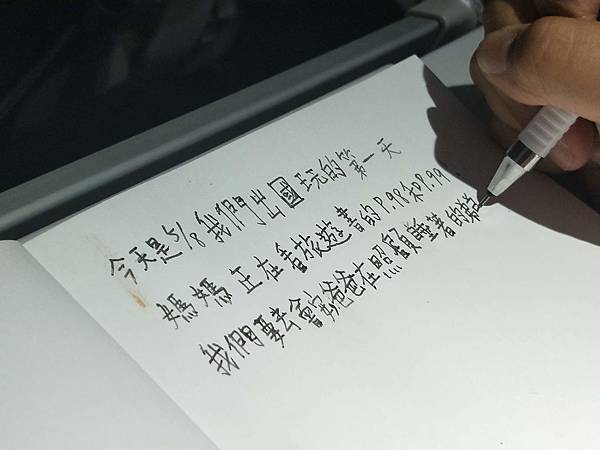 今天是5/8我們出國玩的第一天
媽媽正在看旅遊書的P.98和P.99
我們要去會安爸爸在照顧睡著的